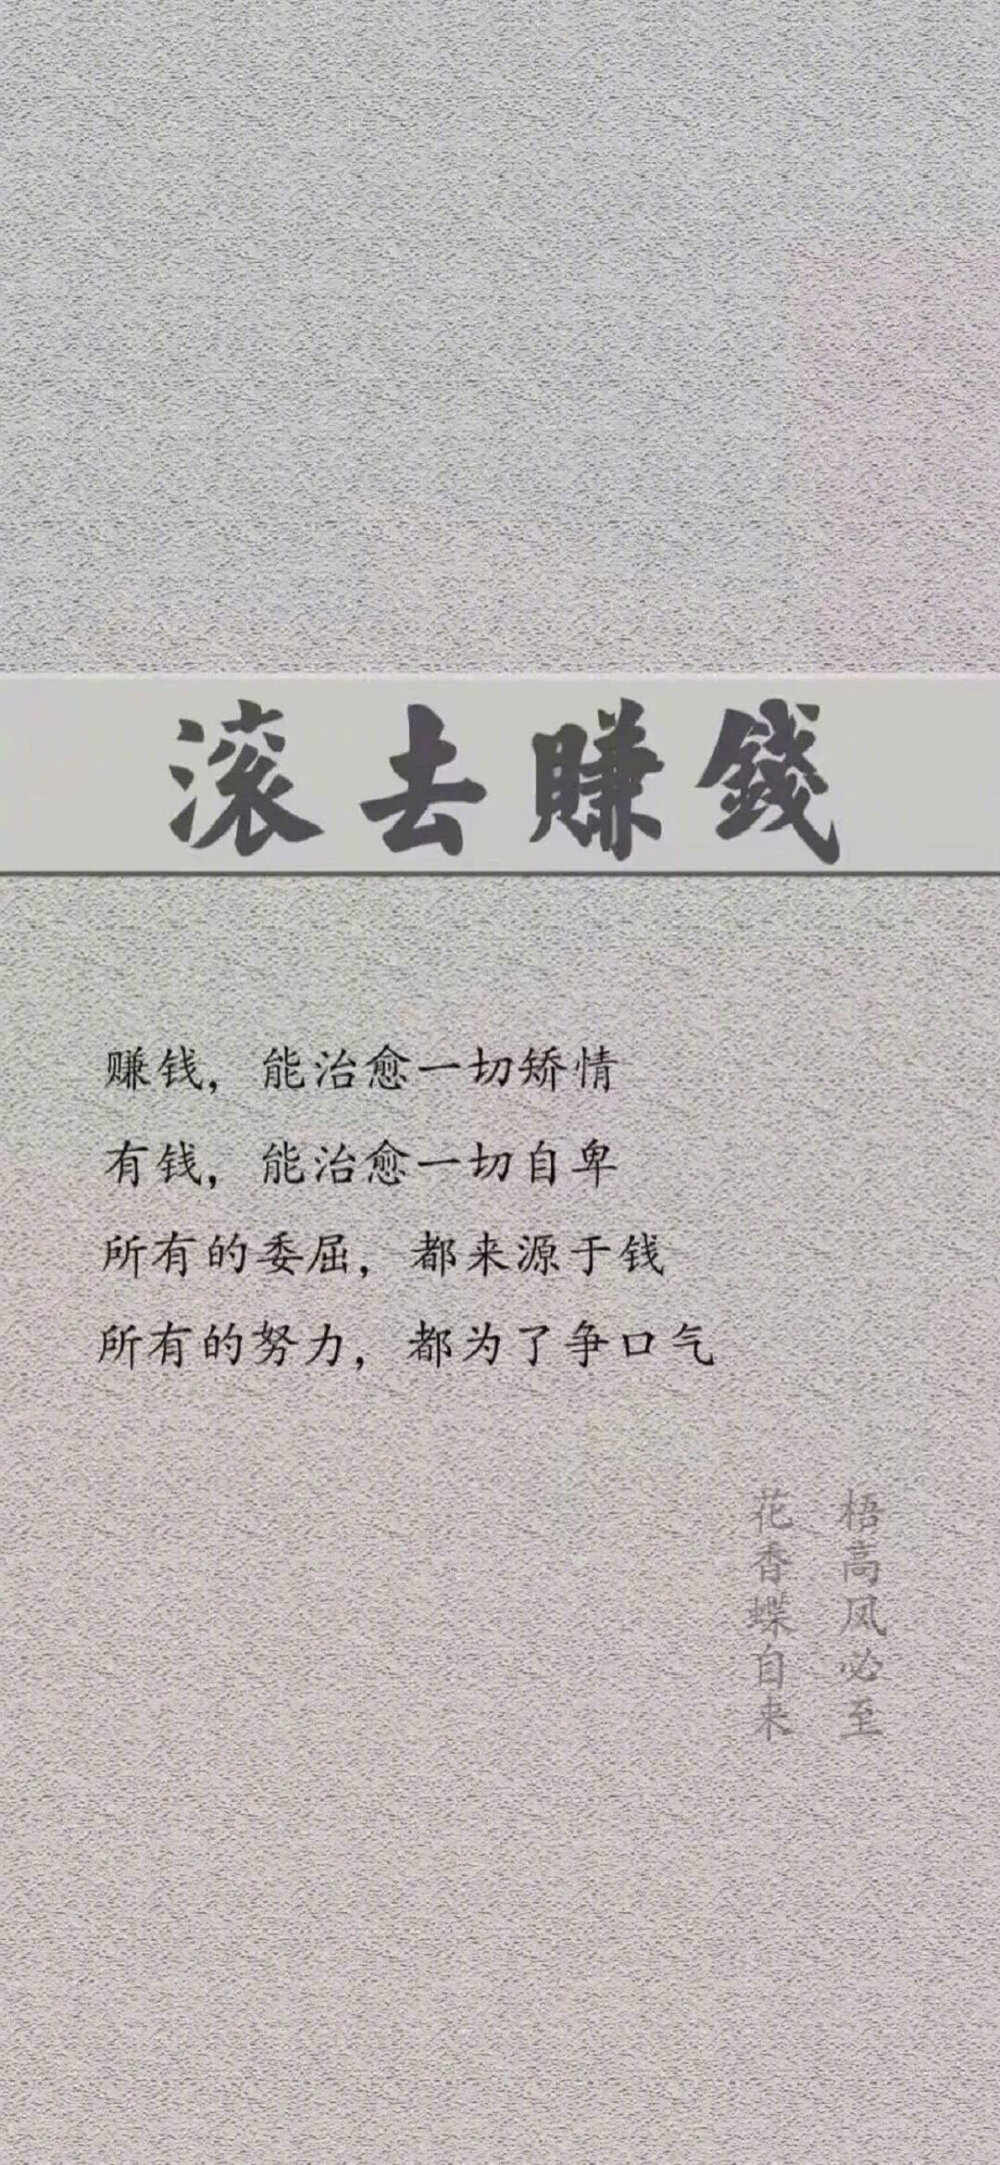 滚去賺錢
赚钱，能治愈一切矫情
有钱，能治愈一切自卑
所有的委屈，都来源于钱
所有的努力，都为了争口气
梧高凤必至
花香蝶自来